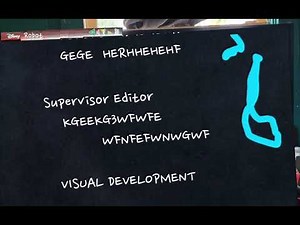 Disney Robot
GEGE HERHHEHEHF
Supervisor Editor
KGEEKG3WFWFE
WFNFEFWNWGWF
VISUAL DEVELOPMENT